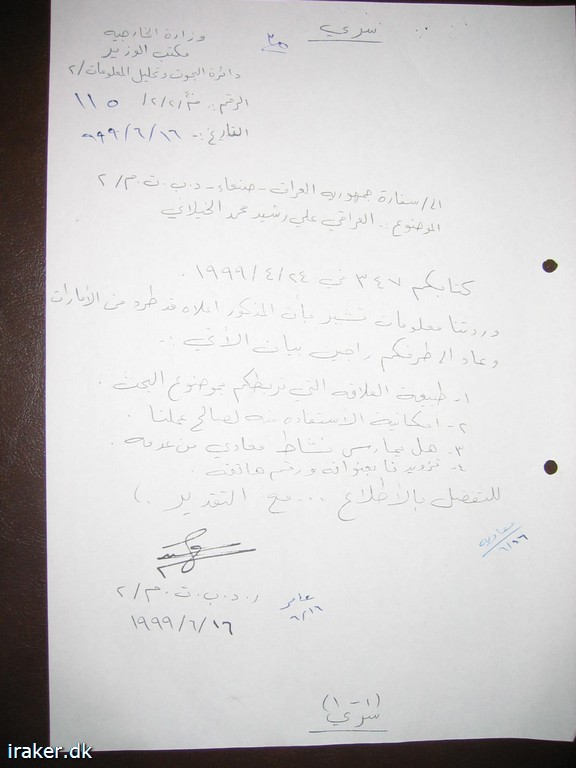 سري
٣٥
وزارة الخارجيه
مكتب الوزير
دائرة البحوث وتحليل المعلومات/٢
الرقم :. م/٢/٢/ ١١٥
التاريخ :- ٩٩٩/٦/١٦
الى/ سفارة جمهورية العراق - صنعاء - د.ب.ت.م/٢
الموضوع :. العراقي علي رشيد محمد الخيلاني
كتابكم ٣٤٧ في ١٩٩٩/٤/٢٤ .
وردتنا معلومات تشير بأن المذكور اعلاه قد طرد من الأمارات
وعاد الى طرفكم راجين بيان الأتي :-
١- طبيعة العلاقه التي تربطكم بموضوع البحث .
٢- امكانية الأستفاده منه لصالح عملنا .
٣- هل يمارس نشاط معادي من عدمه .
٤- تزويدنا بعنوانه ورقم هاتفه .
للتفضل بالأطلاع ... مع التقدير .)
٦/١٦
ر.د.ب.ت.م/٢
١٩٩٩/٦/١٦
عامر
٦/١٦
(١-١)
سري
iraker.dk